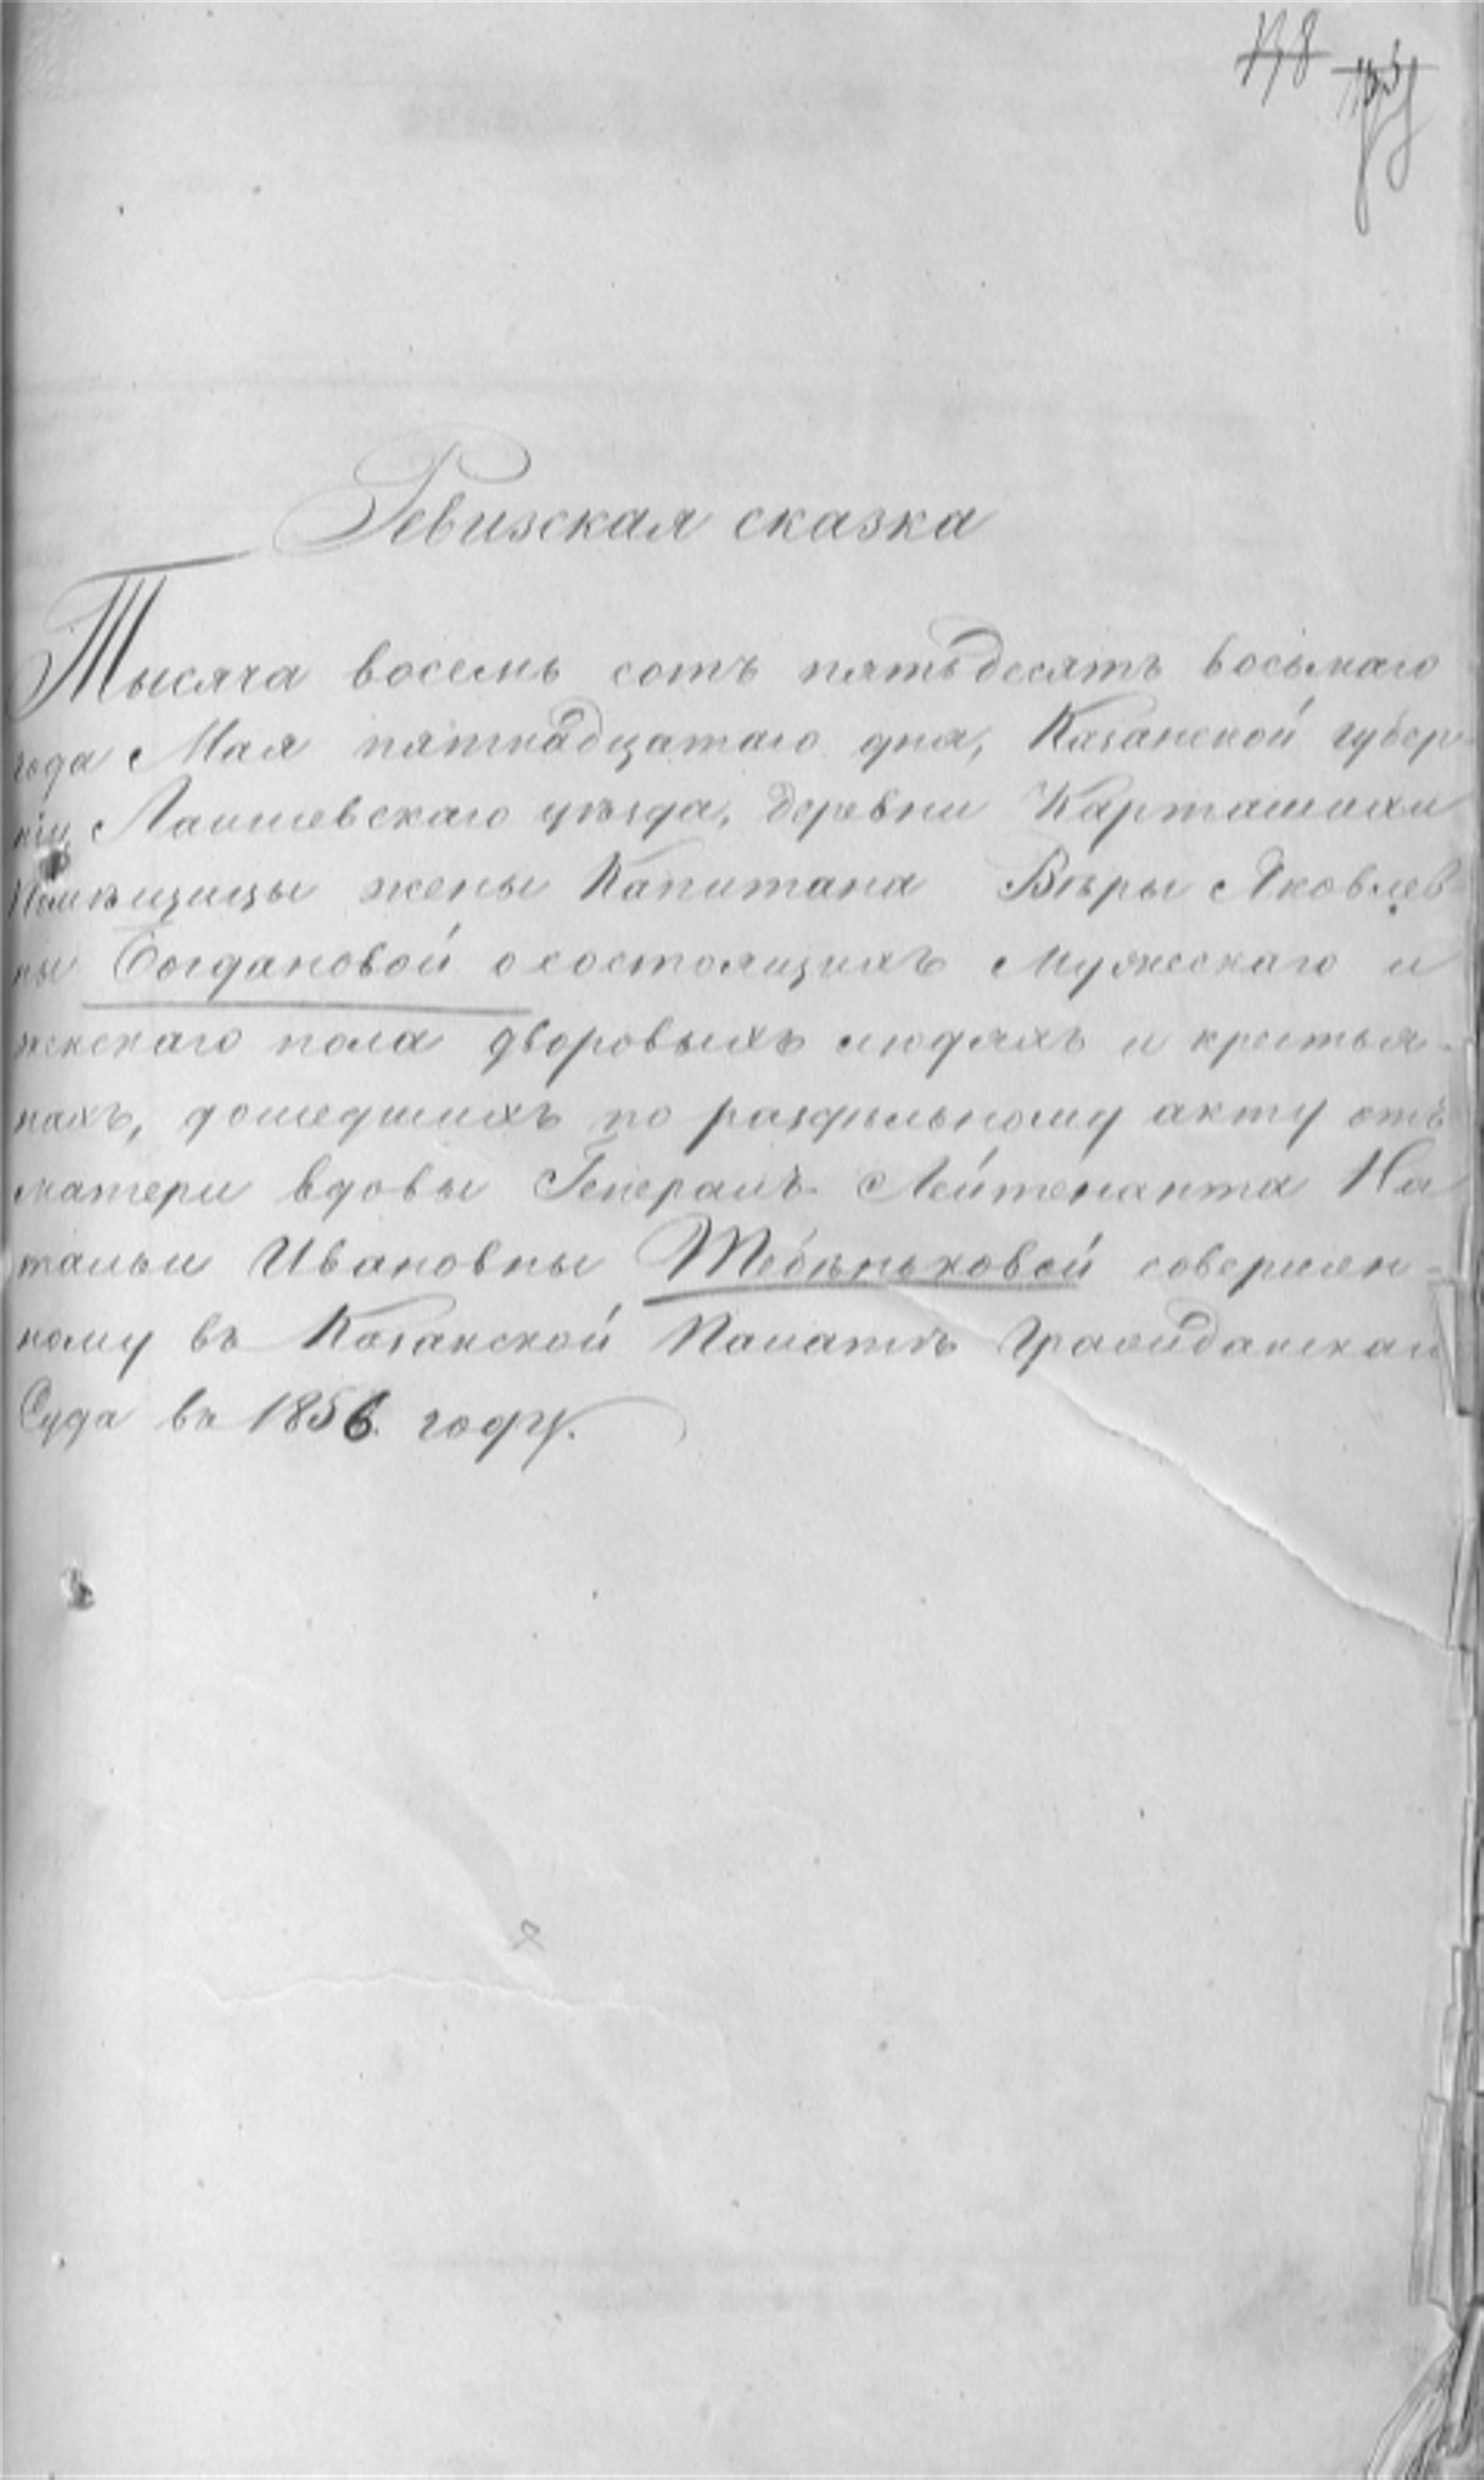 138
Ревизская сказка
Тысяча восемь сотъ пятьдесятъ восьмаго
года Мая пятнадцатаго дня, Казанской губер-
ніи, Лаишевскаго уѣзда, деревни Карташихи
Помѣщицы жены Капитана Вѣры Яковлев-
ны Богдановой о состоящихъ мужескаго и
женскаго пола дворовыхъ людяхъ и крестья-
нахъ, дошедшихъ по раздѣльному акту отъ
матери вдовы Генералъ-Лейтенанта На
тальи Ивановны Тебѣньковой совершен-
ному въ Казанской Палатѣ Гражданскаго
Суда въ 1856. году.